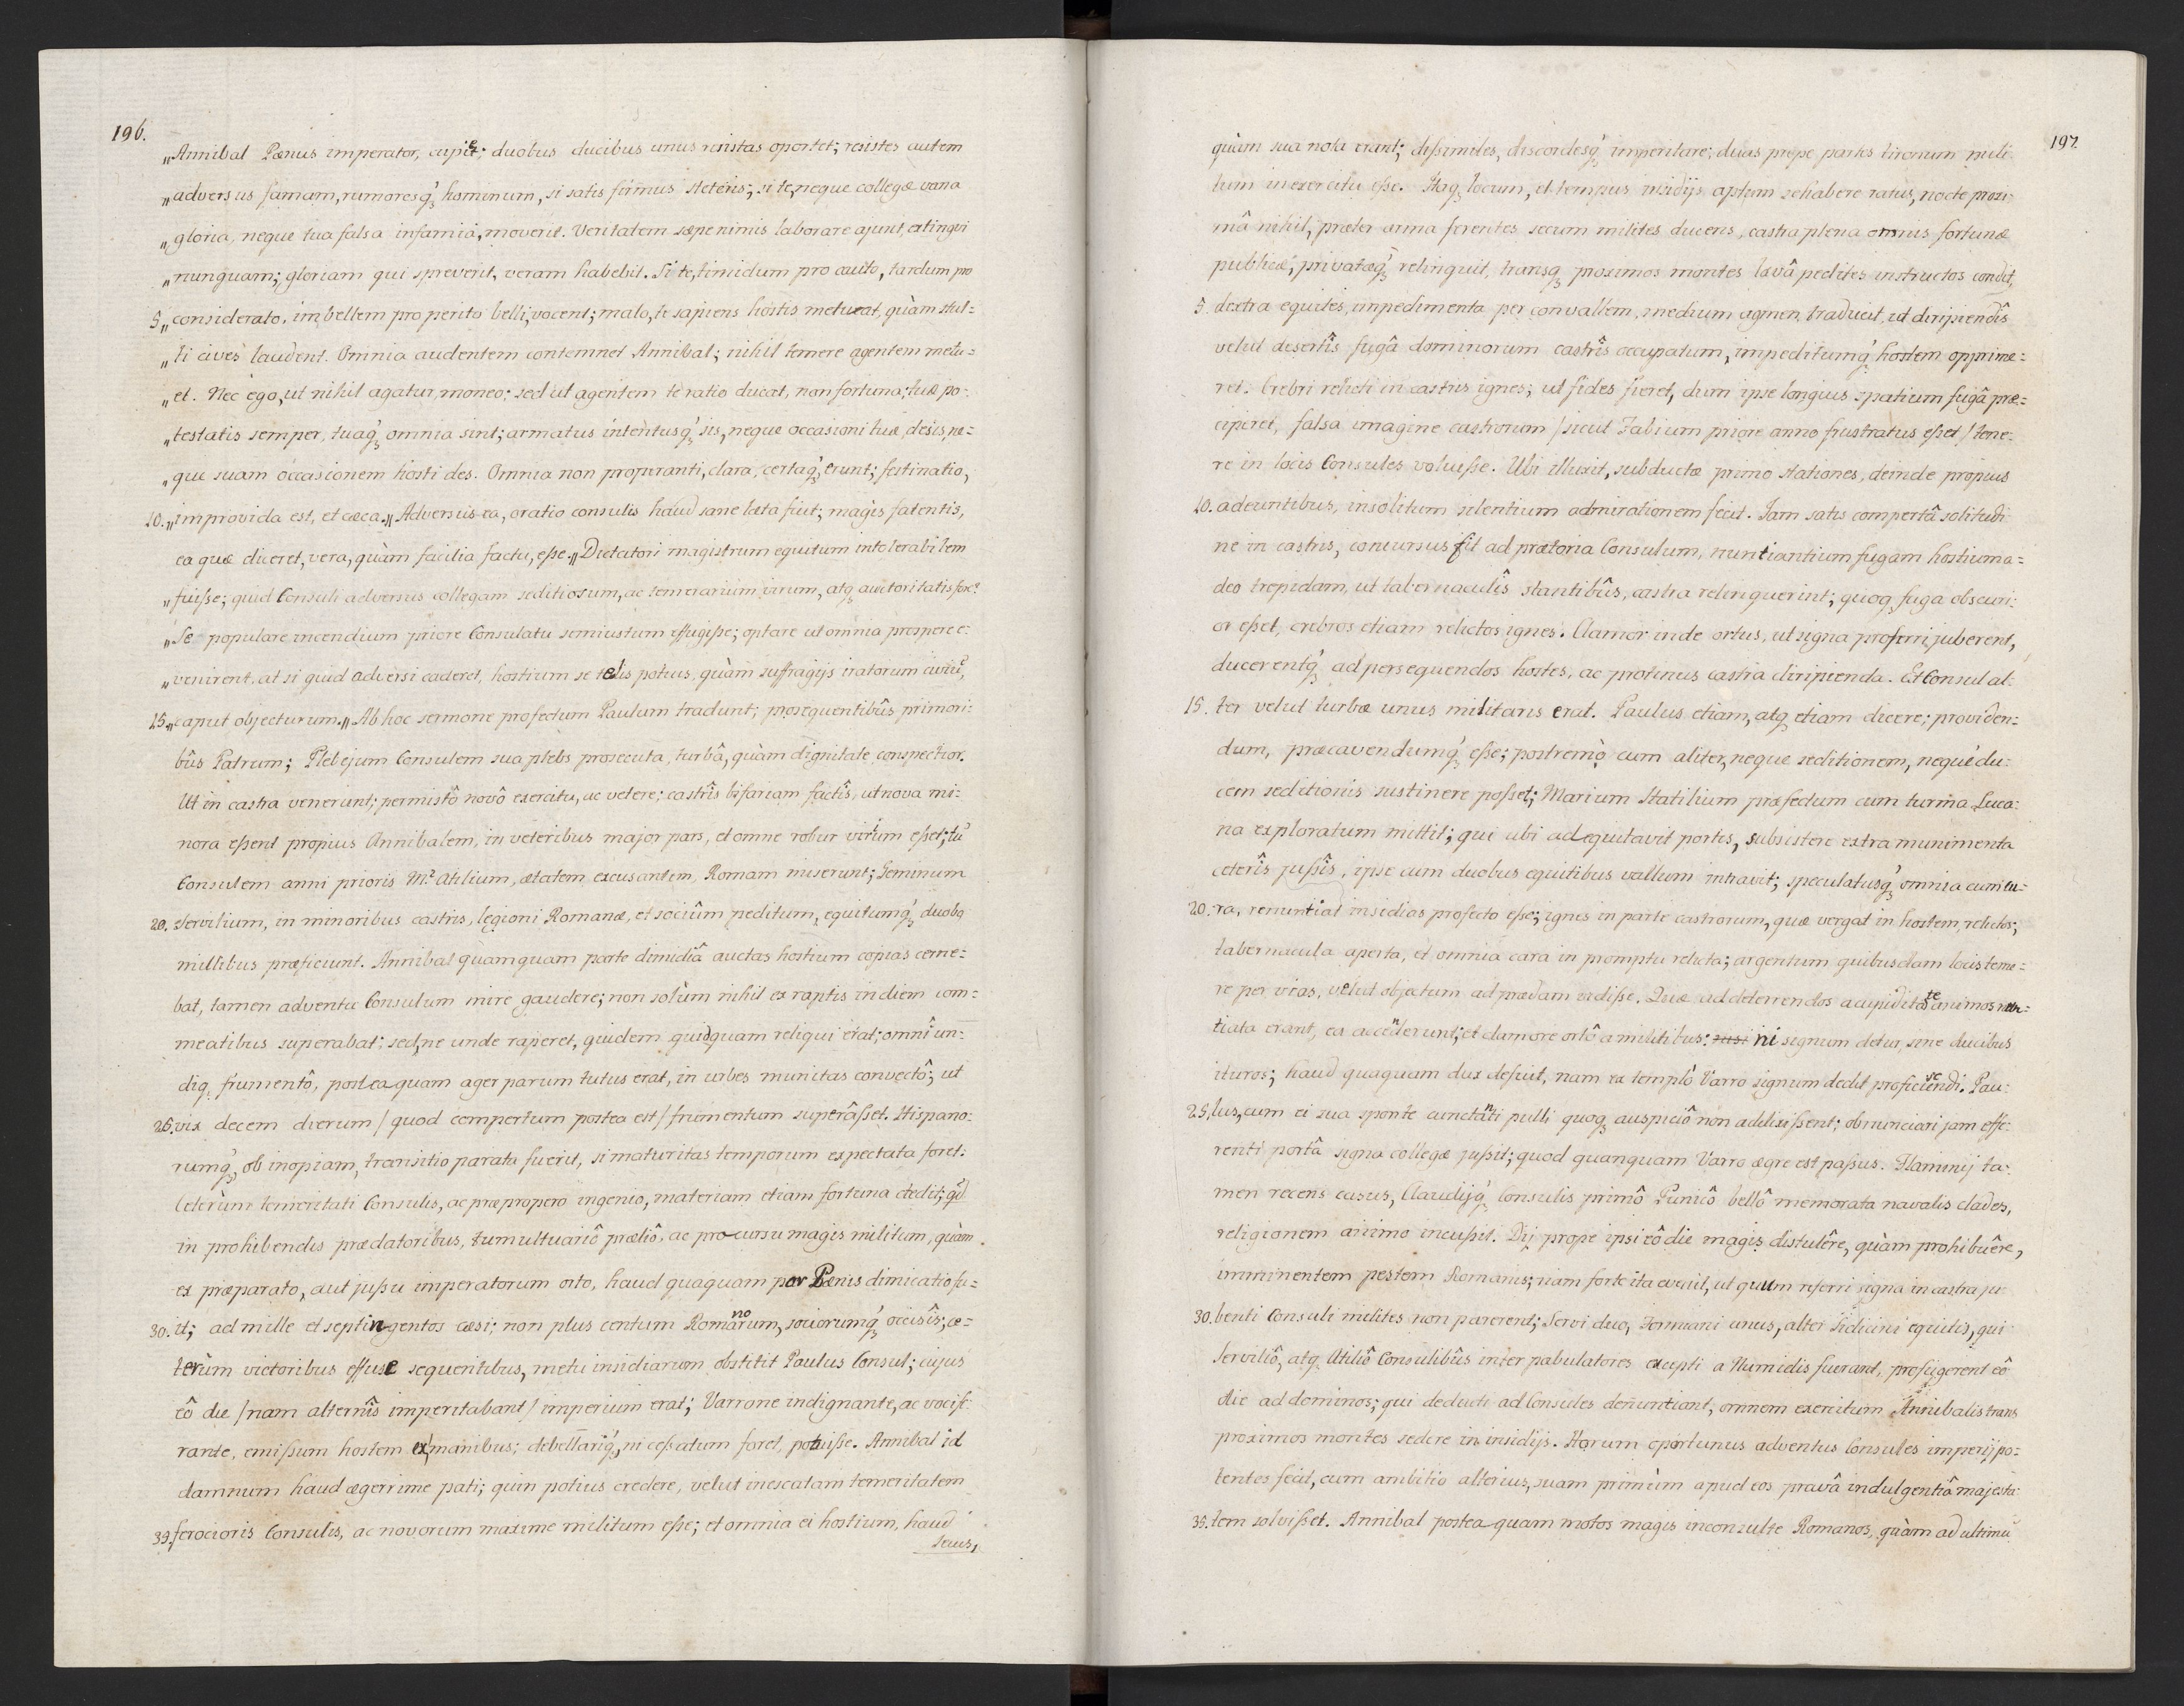 196.
„Annibal Pænus imperator, cupiet; duobus ducibus unus resistas oportet; resistes autem
„adversus famam, rumoresq́ȝ hominum, si satis firmus steteris; si te, neque collegæ vana
„gloria, neque tua falsa infamia, moverit. Veritatem sæpe nimis laborare ajunt, extingvi
„nunquam; gloriam qui spreverit, veram habebit. Si te, timidum pro cauto, tardum pro
5. „considerato, imbellem pro perito belli, vocent; malo, te sapiens hostis metuat, quàm stul=
„ti cives laudent. Omnia audentem contemnet Annibal; nihil temere agentem metu=
„et. Nec ego, ut nihil agatur, moneo; sed ut agentem te ratio ducat, non fortuna; tuæ po=
„testatis semper, tuaq́ȝ omnia sint; armatus intentusq́ȝ sis, neque occasioni tuæ, desis, ne=
„que suam occasionem hosti des. Omnia non properanti, clara, certaq́ȝ erunt; festinatio,
10. „improvida est, et cæca.„ Adversus ea, oratio consulis haud sane læta fuit; magis fatentis,
ea quæ diceret, vera, quàm facilia factu, esse. „Dictatori magistrum equitum intolerabilem
„fuisse; quid Consuli adversus collegam seditiosum, ac temerarium virum, atqȝ auctoritatis fore?
„Se populare incendium priore Consulatu semiustum effugisse; optare ut omnia prospere e=
„venirent, at si quid adversi caderet, hostium se telis potius, quàm suffragijs iratorum civiū,
15. „caput objecturum.„ Ab hoc sermone profectum Paulum tradunt; prosequentibûs primori=
bûs Patrum; Plebejum Consulem sua plebs prosecuta, turbâ, quàm dignitate conspectior.
Ut in castra venerunt; permistô novô exercitu, ac vetere; castrîs bifariam factîs, ut nova mi=
nora essent propius Annibalem, in veteribus major pars, et omne robur virium esset; tū
Consulem anni prioris M. Atilium, ætatem excusantem, Romam miserunt; Geminum
20. Servilium, in minoribus castris, legioni Romanæ, et sociûm peditum, equitumq́ȝ duobȝ
millibus præficiunt. Annibal quamquam parte dimidiâ auctas hostium copias cerne=
bat, tamen adventu Consulum mire gaudere; non solùm nihil ex raptis in diem com=
meatibus superabat; sed, ne unde raperet, quidem quidquam reliqui erat; omnî un=
diqȝ frumentô, posteaquam ager parum tutus erat, in urbes munitas convectô; ut
25. vix decem dierum / quod compertum postea est / frumentum superâsset. Hispano=
rumq́ȝ, ob inopiam, transitio parata fuerit, si maturitas temporum expectata foret.
Ceterùm temeritati Consulis, ac præpropero ingenio, materiam etiam fortuna dedit; qđ
in prohibendis prædatoribus, tumultuariô præliô, ac procursu magis militum, quàm
ex præparato, aut jussu imperatorum orto, haud quaquam par Pænis dimicatio fu=
30. it; ad mille et septingentos cæsi; non plus centum Romanorum, sociorumq́ȝ occisîs; ce=
terùm victoribus effuse sequentibus, metu insidiarum obstitit Paulus Consul; cujus
eô die / nam alternîs imperitabant / imperium erat; Varrone indignante, ac vocife=
rante, emissum hostem ex manibus; debellariq́ȝ, ni cessatum foret, potuisse. Annibal id
damnum haud ægerrime pati; quin potius credere, velut inescatam temeritatem
35. ferocioris Consulis, ac novorum maxime militum esse; et omnia ei hostium, haud
secus,
197.
quàm sua nota erant; dissimiles, discordesq́ȝ imperitare; duas prope partes tironum mili=
tum in exercitu esse. Itaqȝ locum, et tempus insidijs aptum se habere ratus, nocte proxi=
mâ nihil, præter arma ferentes secum milites ducens, castra plena omnis fortunæ
publicæ, privatæq́ȝ relinquit, transqȝ proximos montes lævâ pedites instructos condit,
5. dextra equites, impedimenta per convallem, medium agmen, traducit, ut diripiendîs
velut desertîs fugâ dominorum castrîs occupatum, impeditumq́ȝ hostem opprime=
ret. Crebri relicti in castris ignes; ut fides fieret, dum ipse longius spatium fugâ præ=
ciperet, falsa imagine castrorum / sicut Fabium priore anno frustratus esset / tene=
re in locis Consules voluisse. Ubi illuxit, subductæ primo stationes, deinde propius
10. adeuntibus, insolitum silentium admirationem fecit. Iam satis compertâ solitudi
ne in castris, concursus fit ad prætoria Consulum, nuntiantium fugam hostium a=
deo trepidam, ut tabernaculîs stantibûs, castra relinquerint; quoqȝ fuga obscuri=
or esset, crebros etiam relictos ignes. Clamor inde ortus, ut signa proferri juberent,
ducerentq́ȝ ad persequendos hostes, ac protinus castra diripienda. Et Consul al=
15. ter velut turbæ unus militaris erat. Paulus etiam, atqȝ etiam dicere; providen=
dum, præcavendumq́ȝ esse; postremò cum aliter, neque seditionem, neque du=
cem seditionis sustinere posset; Marium Statilium præfectum cum turma Luca=
na exploratum mittit; qui ubi adequitavit portis, subsistere extra munimenta
ceterîs jussîs, ipse cum duobus equitibus vallum intravit; speculatusq́ȝ omnia cum cu=
20. ra, renuntiat insidias profecto esse; ignes in parte castrorum, quæ vergat in hostem, relictos;
tabernacula aperta, et omnia cara in promptu relicta; argentum quibusdam locis teme=
re per vias, velut objectum ad prædam vidisse. Quæ ad deterrendos a cupiditate animos nun=
tiata erant, ea accenderunt; et clamore ortô a militibus: ni signum detur, sine ducibus
ituros; haud quaquam dux defuit, nam extemplô Varro signum dedit proficiscendi. Pau=
25. lus, cum ei sua sponte cunctanti pulli quoqȝ auspiciô non addixissent; obnunciari jam effe=
renti portâ signa collegæ jussit; quod quanquam Varro ægre est passus. Flaminij ta=
men recens casus, Claudijq́ȝ Consulis primô Punicô bellô memorata navalis clades,
religionem animo incussit. Dij prope ipsi eô die magis distulêre, quàm prohibuêre,
imminentem pestem Romanis; nam forte ita evenit, ut quum referri signa in castra ju=
30. benti Consuli milites non parerent; Servi duo, Formiani unus, alter Sidicini equitis, qui
Serviliô, atqȝ Atiliô Consulibûs inter pabulatores excepti a Numidis fuerant, profugerent eô
die ad dominos; qui deducti ad Consules denuntiant, omnem exercitum Annibalis trans
proximos montes sedere in insidijs. Horum oportunus adventus Consules imperij po=
tentes fecit, cum ambitio alterius, suam primùm apud eos pravâ indulgentiâ majesta=
35. tem solvisset. Annibal postea quam motos magis inconsulte Romanos, quàm ad ultimū